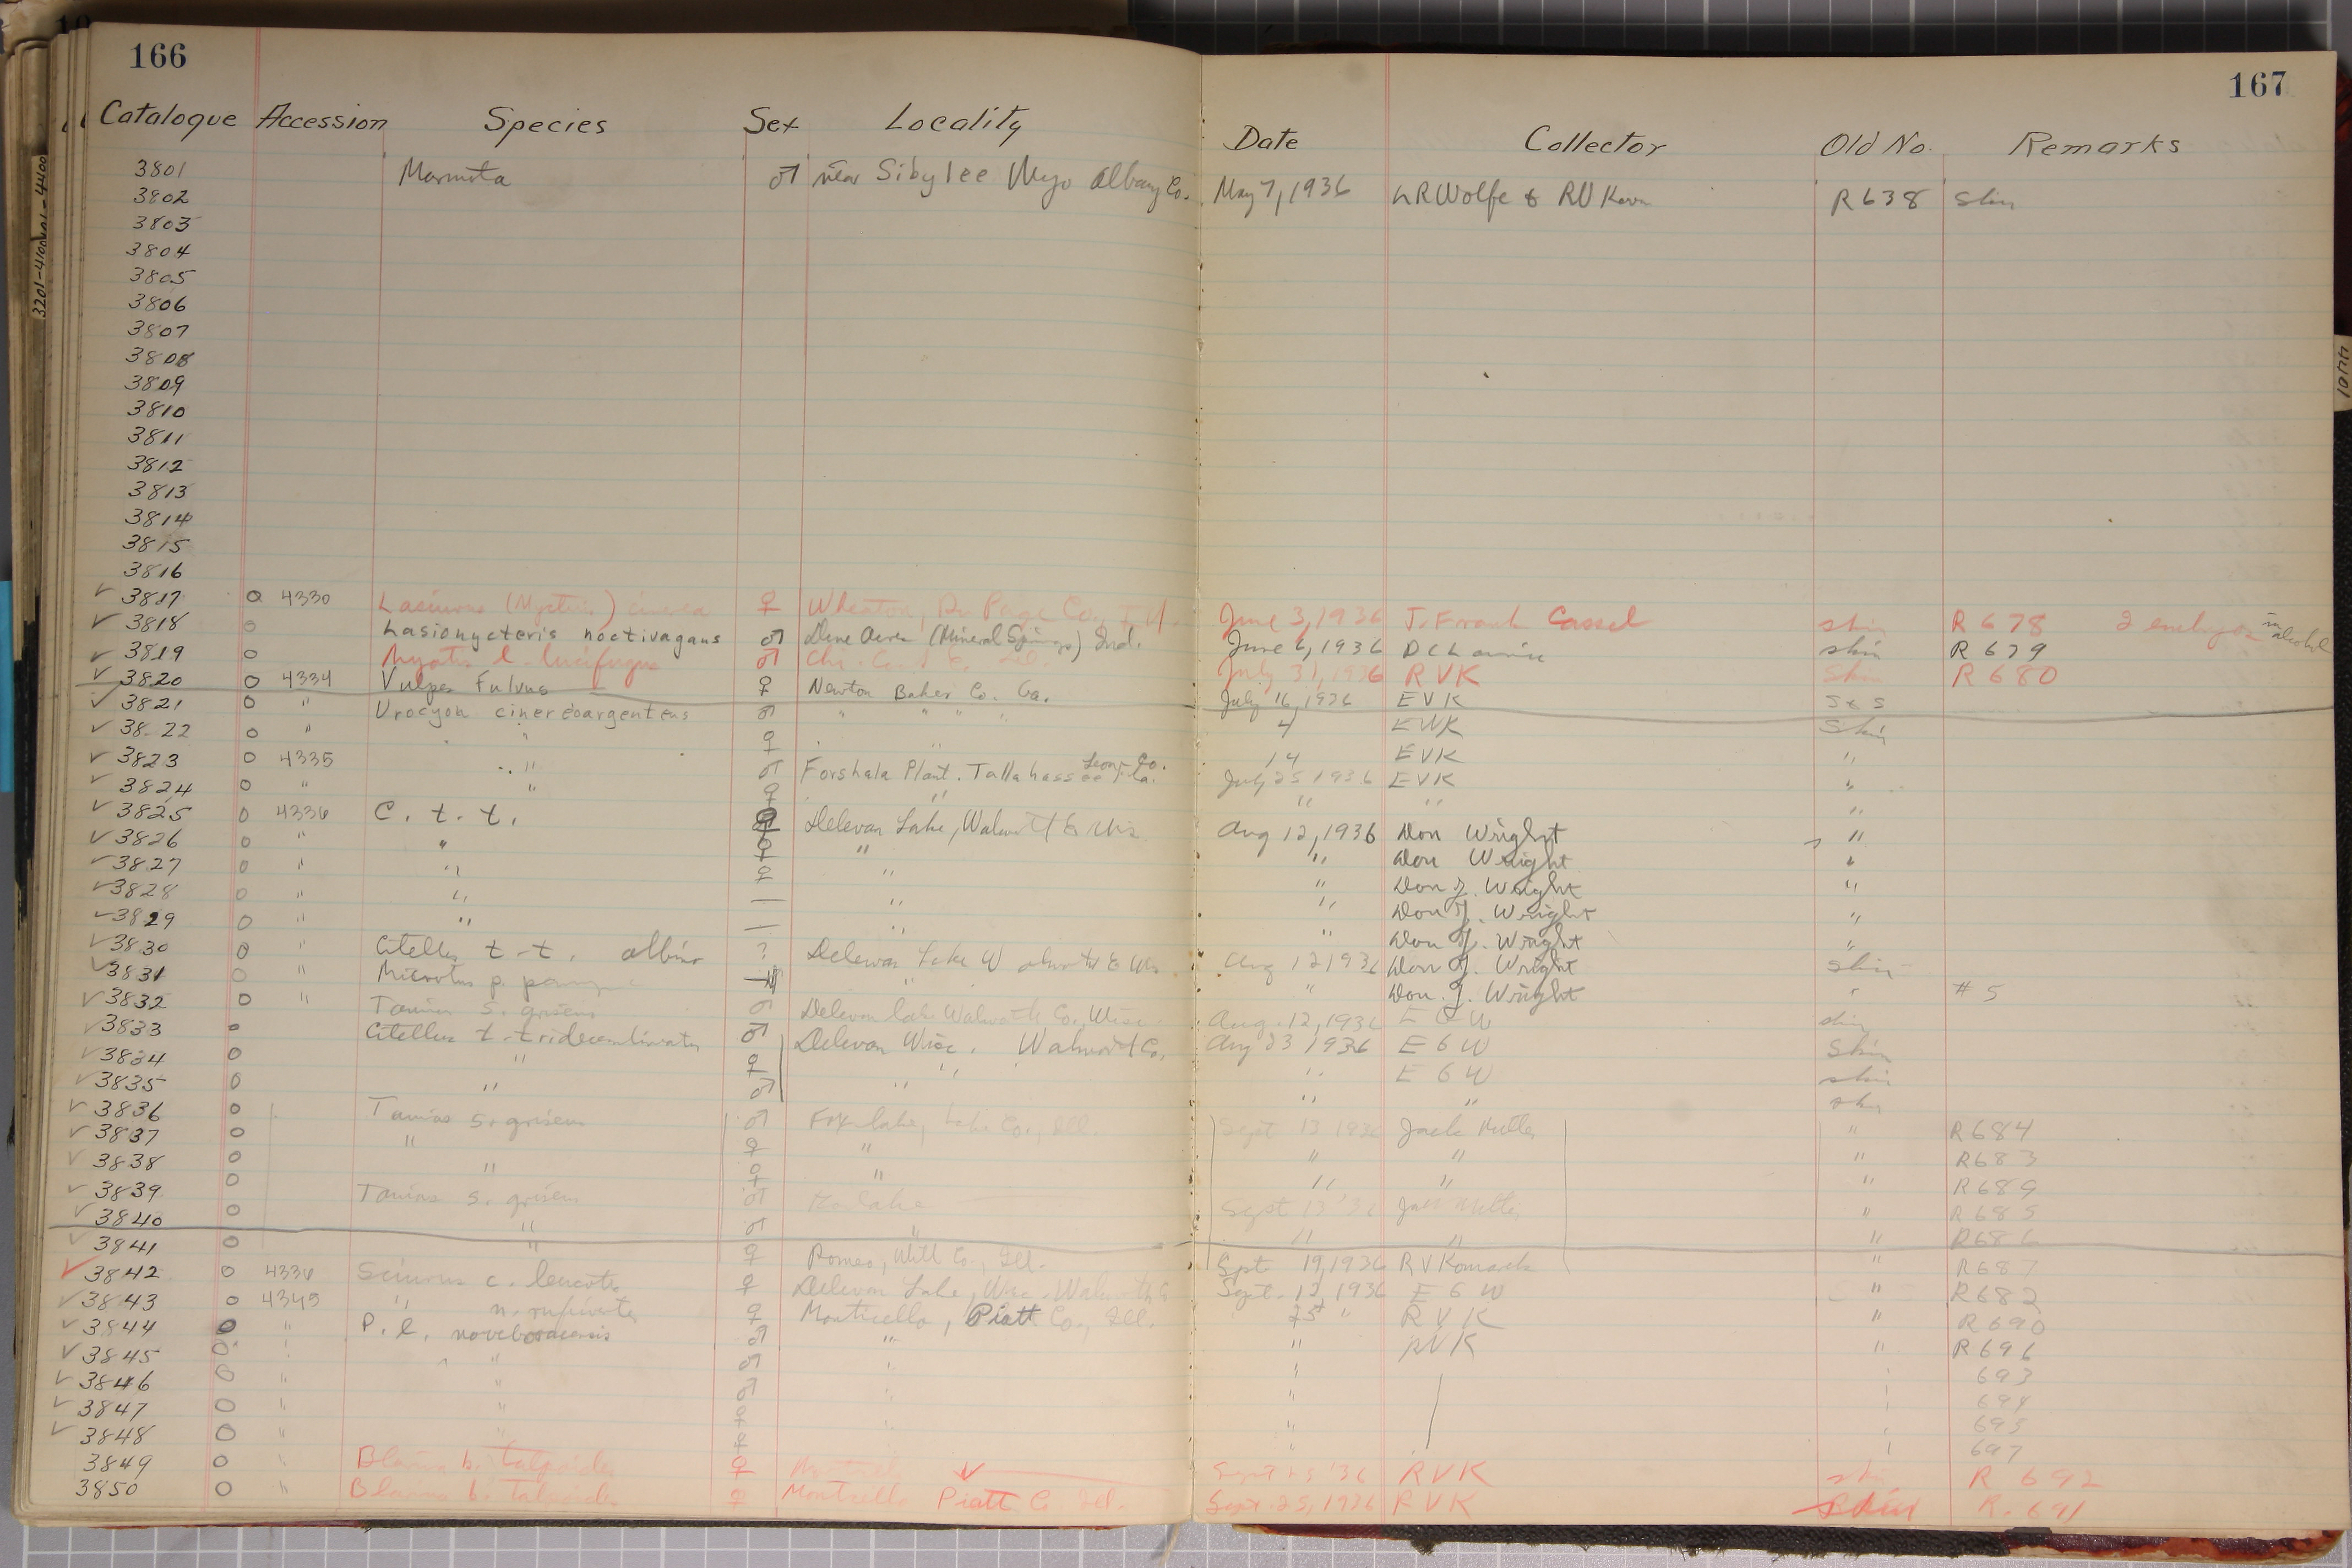 166
167
Catalogue Accession Species Sex Locality Date Collector Old No. Remarks
3801 Marmota ♂ near Sibylee Wyo Albany Co. May 7, 1936 LR Wolfe & RV Kom R638 Skin
3802
3803
3804
3805
3806
3807
3808
3809
3810
3811
3812
3813
3814
3815
3816
✓ 3817 o 4330 Lasiurus (Nycteris) cinerea ♀ Wheaton, Du Page Co., Ill. June 3, 1936 J. Frank Cassel skin R 678 2 embryos in alcohol
✓ 3818 o Lasionycteris noctivagans ♂ Dune Acres (Mineral Springs) Ind. June 6, 1936 skin R 679
✓ 3819 o Myotis l. lucifugus ♂ July 31, 1936 RVK Skin R 680
✓ 3820 o 4334 Vulpes Fulvus ♀ Newton Baker Co. Ga. July 16, 1936 EVK S & S
✓ 3821 o " Urocyon cinereoargenteus ♂ " " " " 4 EVK Skin
✓ 3822 o " " ♀ " 14 EVK "
✓ 3823 o 4335 " ♂ Forshala Plant. Tallahassee Leon Co. Fla. July 25 1936 EVK "
✓ 3824 o " " ♀ " " " "
✓ 3825 o 4336 C. t. t. Delevan Lake, Walworth Co Wis Aug 12, 1936 Don Wright "
✓ 3826 o " " ♀ " " Don Wright "
✓ 3827 o " " ♀ " " Don J. Wright "
✓ 3828 o " " — " " Don J. Wright "
✓ 3829 o " " — " " Don J. Wright "
✓ 3830 o " Citellus t-t. albino ? Delevan Lake Walworth Co Wis Aug 12 1936 Don J. Wright Skin
✓ 3831 o " Microtus p. " " Don. J. Wright " # 5
✓ 3832 o " Tamias s. griseus ♂ Delevan lake Walworth Co., Wisc. Aug. 12, 1936 E G W skin
✓ 3833 o Citellus t. tridecemlineatus ♂ Delevan Wisc. Walworth Co. Aug 23 1936 E G W Skin
✓ 3834 o " ♀ " " E G W skin
✓ 3835 o " ♂ " " " skin
✓ 3836 o Tamias s. griseus ♂ Fox lake, Lake Co., Ill. Sept 13 1936 Jack " R684
✓ 3837 o " ♀ " " " " R683
✓ 3838 o " ♀ " " " " R689
✓ 3839 o Tamias s. griseus ♂ Fox lake Sept 13 '36 Jack " R685
✓ 3840 o " ♂ " " " " R686
✓ 3841 o " ♀ Romeo, Will Co., Ill. Spt 19, 1936 R V Komarek " R687
✓ 3842 o 4336 Sciurus c. leucotis ♀ Delevan Lake, Wisc. Walworth Co Sept. 12, 1936 E G W " R682
✓ 3843 o 4345 " n. rufiventer ♀ Monticello, Piatt Co., Ill. 25 " R V K " R690
✓ 3844 o " P. l. noveboracensis ♂ " " RVK " R696
✓ 3845 o " " ♂ " " " 693
✓ 3846 o " " ♂ " " " 694
✓ 3847 o " " ♀ " " " 695
✓ 3848 o " " ♀ " " " 697
3849 o " Blarina b. talpoides ♀ Sept 25 '36 RVK skin R 692
3850 o " Blarina b. talpoides ♀ Monticello Piatt Co Ill. Sept. 25, 1936 RVK Skin R. 691
3201-4100
4401